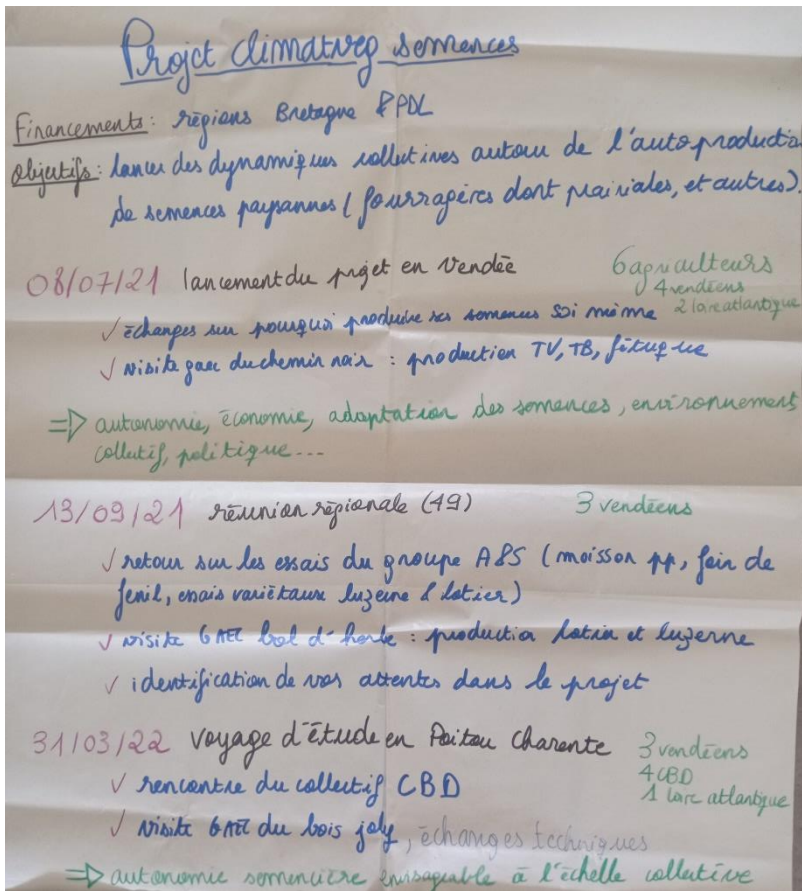 Projet climatveg semences
Financements: régions Bretagne & PDL
Objectifs: lancer des dynamiques collectives autour de l'autoproductio
de semences paysannes (fourragères dont prairiales, et autres).
08/07/21 lancement du projet en Vendée 6 agriculteurs
4 vendéens
2 loire atlantique
✓ échanges sur pourquoi produire ses semences soi même
✓ visite gaec du chemin noir : production TV, TB, fétuque
=> autonomie, économie, adaptation des semences, environnement
collectif, politique...
13/09/21 réunion régionale (49) 3 vendéens
✓ retour sur les essais du groupe A&S (moisson pp, foin de
fenil, essais variétaux luzerne & lotier)
✓ visite GAEC bol d'herbe : production lotier et luzerne
✓ identification de vos attentes dans le projet
31/03/22 voyage d'étude en Poitou Charente 3 vendéens
4 CBD
1 loire atlantique
✓ rencontre du collectif CBD
✓ visite GAEC du bois joly, échanges techniques
=> autonomie semencière envisageable à l'échelle collective